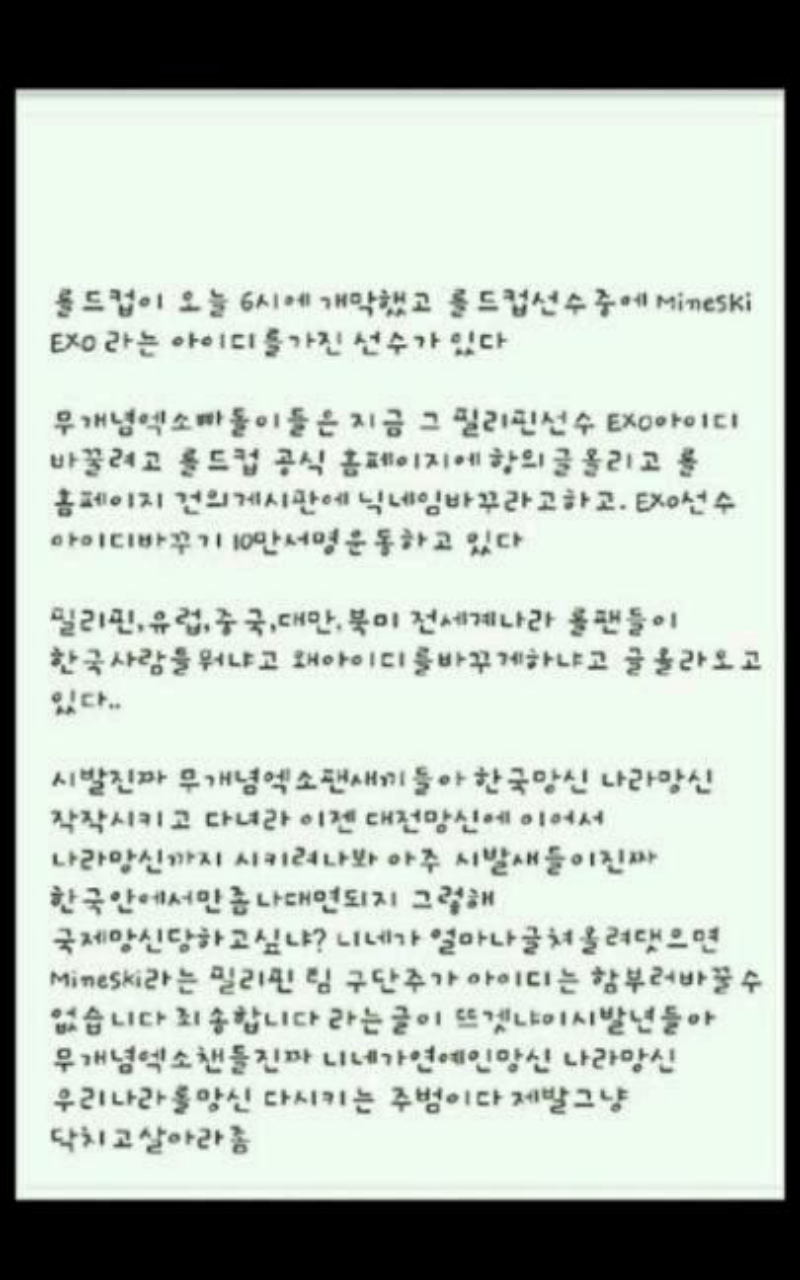 롤드컵이 오늘 6시에개막했고 롤드컵선수중에 MineSki
EXO 라는 아이디를가진 선수가 있다
무개념엑소빠돌이들은 지금 그 필리핀선수 EXO아이디
바꿀려고 롤드컵 공식 홈페이지에항의글올리고 롤
홈페이지 건의게시판에 닉네임바꾸라고하고. EXO선수
아이디바꾸기 10만서명운동하고 있다
필리핀,유럽,중국,대만,북미 전세계나라 롤팬들이
한국사람들뭐냐고 왜아이디를바꾸게하냐고 글올라오고
있다..
시발진짜 무개념엑소팬새끼들아 한국망신 나라망신
작작시키고 다녀라 이젠 대전망신에 이어서
나라망신까지 시키려나봐 아주 시발새들이진짜
한국안에서만좀나대면되지 그렇해
국제망신당하고싶냐? 니네가 얼마나글쳐올려댓으면
MineSki라는 필리핀 팀 구단주가 아이디는 함부러바꿀수
없습니다 죄송합니다 라는글이 뜨겟냐이시발년들아
무개념엑소챈들진짜 니네가연예인망신 나라망신
우리나라롤망신 다시키는 주범이다 제발그냥
닥치고살아라좀